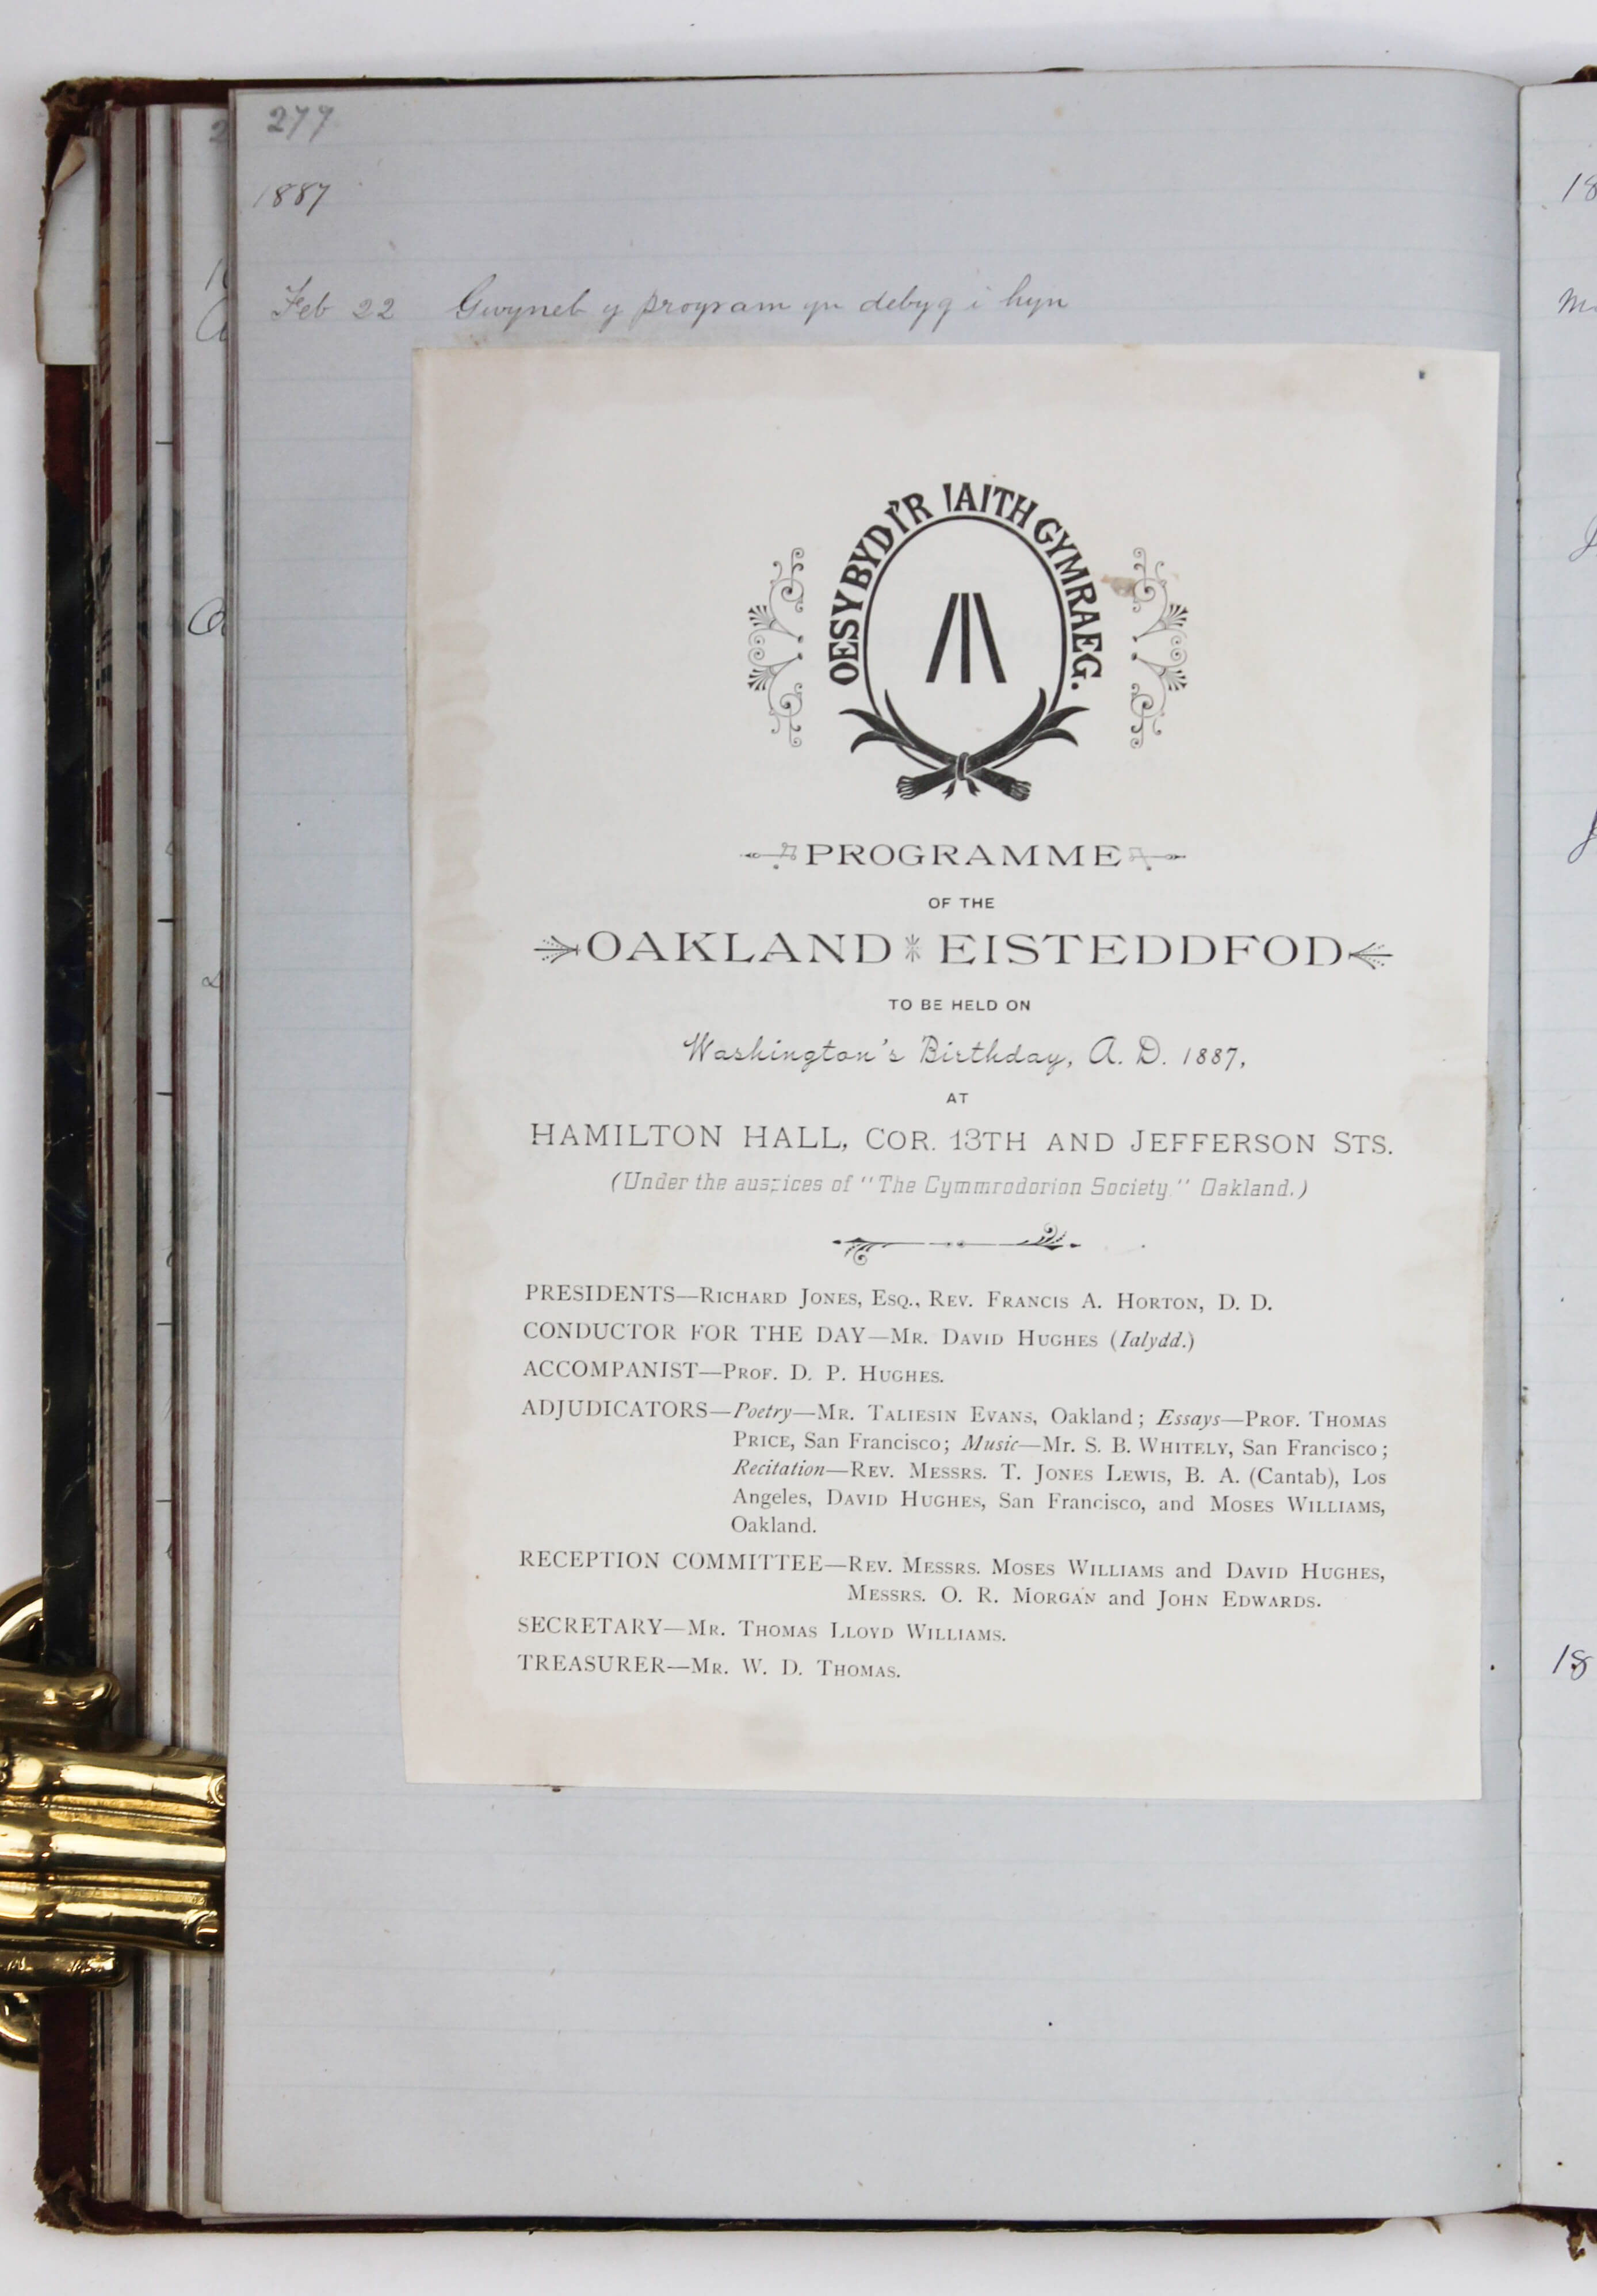 277
1887
Feb 22 Gwyneb y program yn debyg i hyn
OES Y BYD I'R IAITH GYMRAEG.
PROGRAMME
OF THE
OAKLAND EISTEDDFOD
TO BE HELD ON
Washington's Birthday, A. D. 1887,
AT
HAMILTON HALL, COR. 13TH AND JEFFERSON STS.
(Under the auspices of "The Cymmrodorion Society" Oakland.)
PRESIDENTS—RICHARD JONES, ESQ., REV. FRANCIS A. HORTON, D. D.
CONDUCTOR FOR THE DAY—MR. DAVID HUGHES (Ialydd.)
ACCOMPANIST—PROF. D. P. HUGHES.
ADJUDICATORS—Poetry—MR. TALIESIN EVANS, Oakland; Essays—PROF. THOMAS
PRICE, San Francisco; Music—Mr. S. B. WHITELY, San Francisco;
Recitation—REV. MESSRS. T. JONES LEWIS, B. A. (Cantab), Los
Angeles, DAVID HUGHES, San Francisco, and MOSES WILLIAMS,
Oakland.
RECEPTION COMMITTEE—REV. MESSRS. MOSES WILLIAMS and DAVID HUGHES,
MESSRS. O. R. MORGAN and JOHN EDWARDS.
SECRETARY—MR. THOMAS LLOYD WILLIAMS.
TREASURER—MR. W. D. THOMAS.
18
18